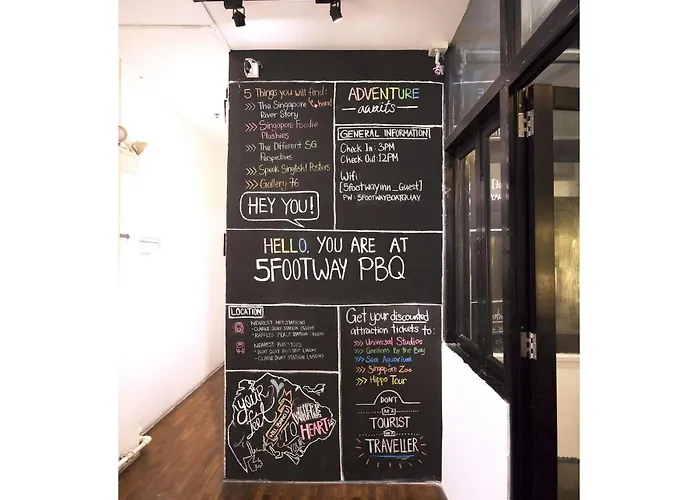 5 Things you will find:
>>> The Singapore heart
River Story
>>> Singapore Foodie
Plushies
>>> The Different SG
Perspective
>>> Speak Singlish! Posters
>>> Gallery 76
HEY YOU!
ADVENTURE
awaits
GENERAL INFORMATION
Check In: 3PM
Check Out: 12PM
Wifi:
[5footwayinn_Guest]
PW: 5FOOTWAYBOATQUAY
HELLO, YOU ARE AT
5FOOTWAY PBQ
LOCATION
NEAREST MRT STATIONS
- CLARKE QUAY STATION
- RAFFLES PLACE STATION
NEAREST BUS STOPS
Get your discounted
attraction tickets to:
>>> Universal Studios
>>> Gardens by the Bay
>>> Sea Aquarium
>>> Singapore Zoo
>>> Hippo Tour
DON'T
BE A
TOURIST
BE A
TRAVELLER
your
feet
HEART